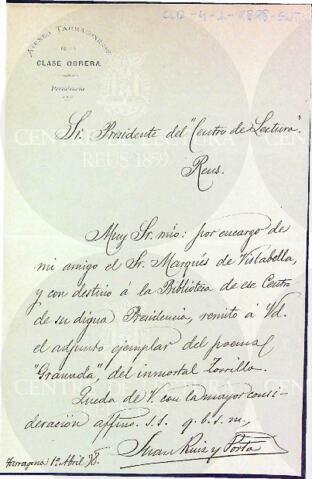 ATENEO TARRACONENSE
DE LA
CLASE OBRERA
Presidencia
Sr. Presidente del "Centro de Lectura".
Reus.
Muy Sr. mío: por encargo de
mi amigo el Sr. Marqués de Vistabella,
y con destino á la Biblioteca de ese Centro
de su digna Presidencia, remito á Vd.
el adjunto ejemplar del poema
"Granada", del inmortal Zorrilla.
Queda de V. con la mayor consi-
deración affmo. s.s. q.b.s.m,
Juan Ruiz y Porta
Tarragona 1º Abril
CENTRE DE LECTURA
REUS 1859